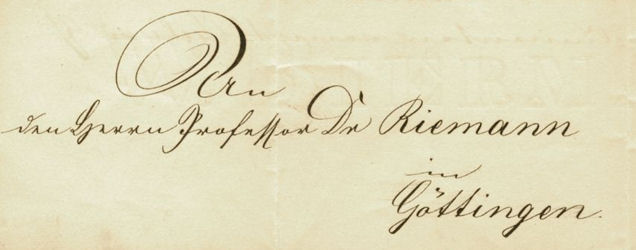 An
den Herrn Professor Dr Riemann
in
Göttingen.